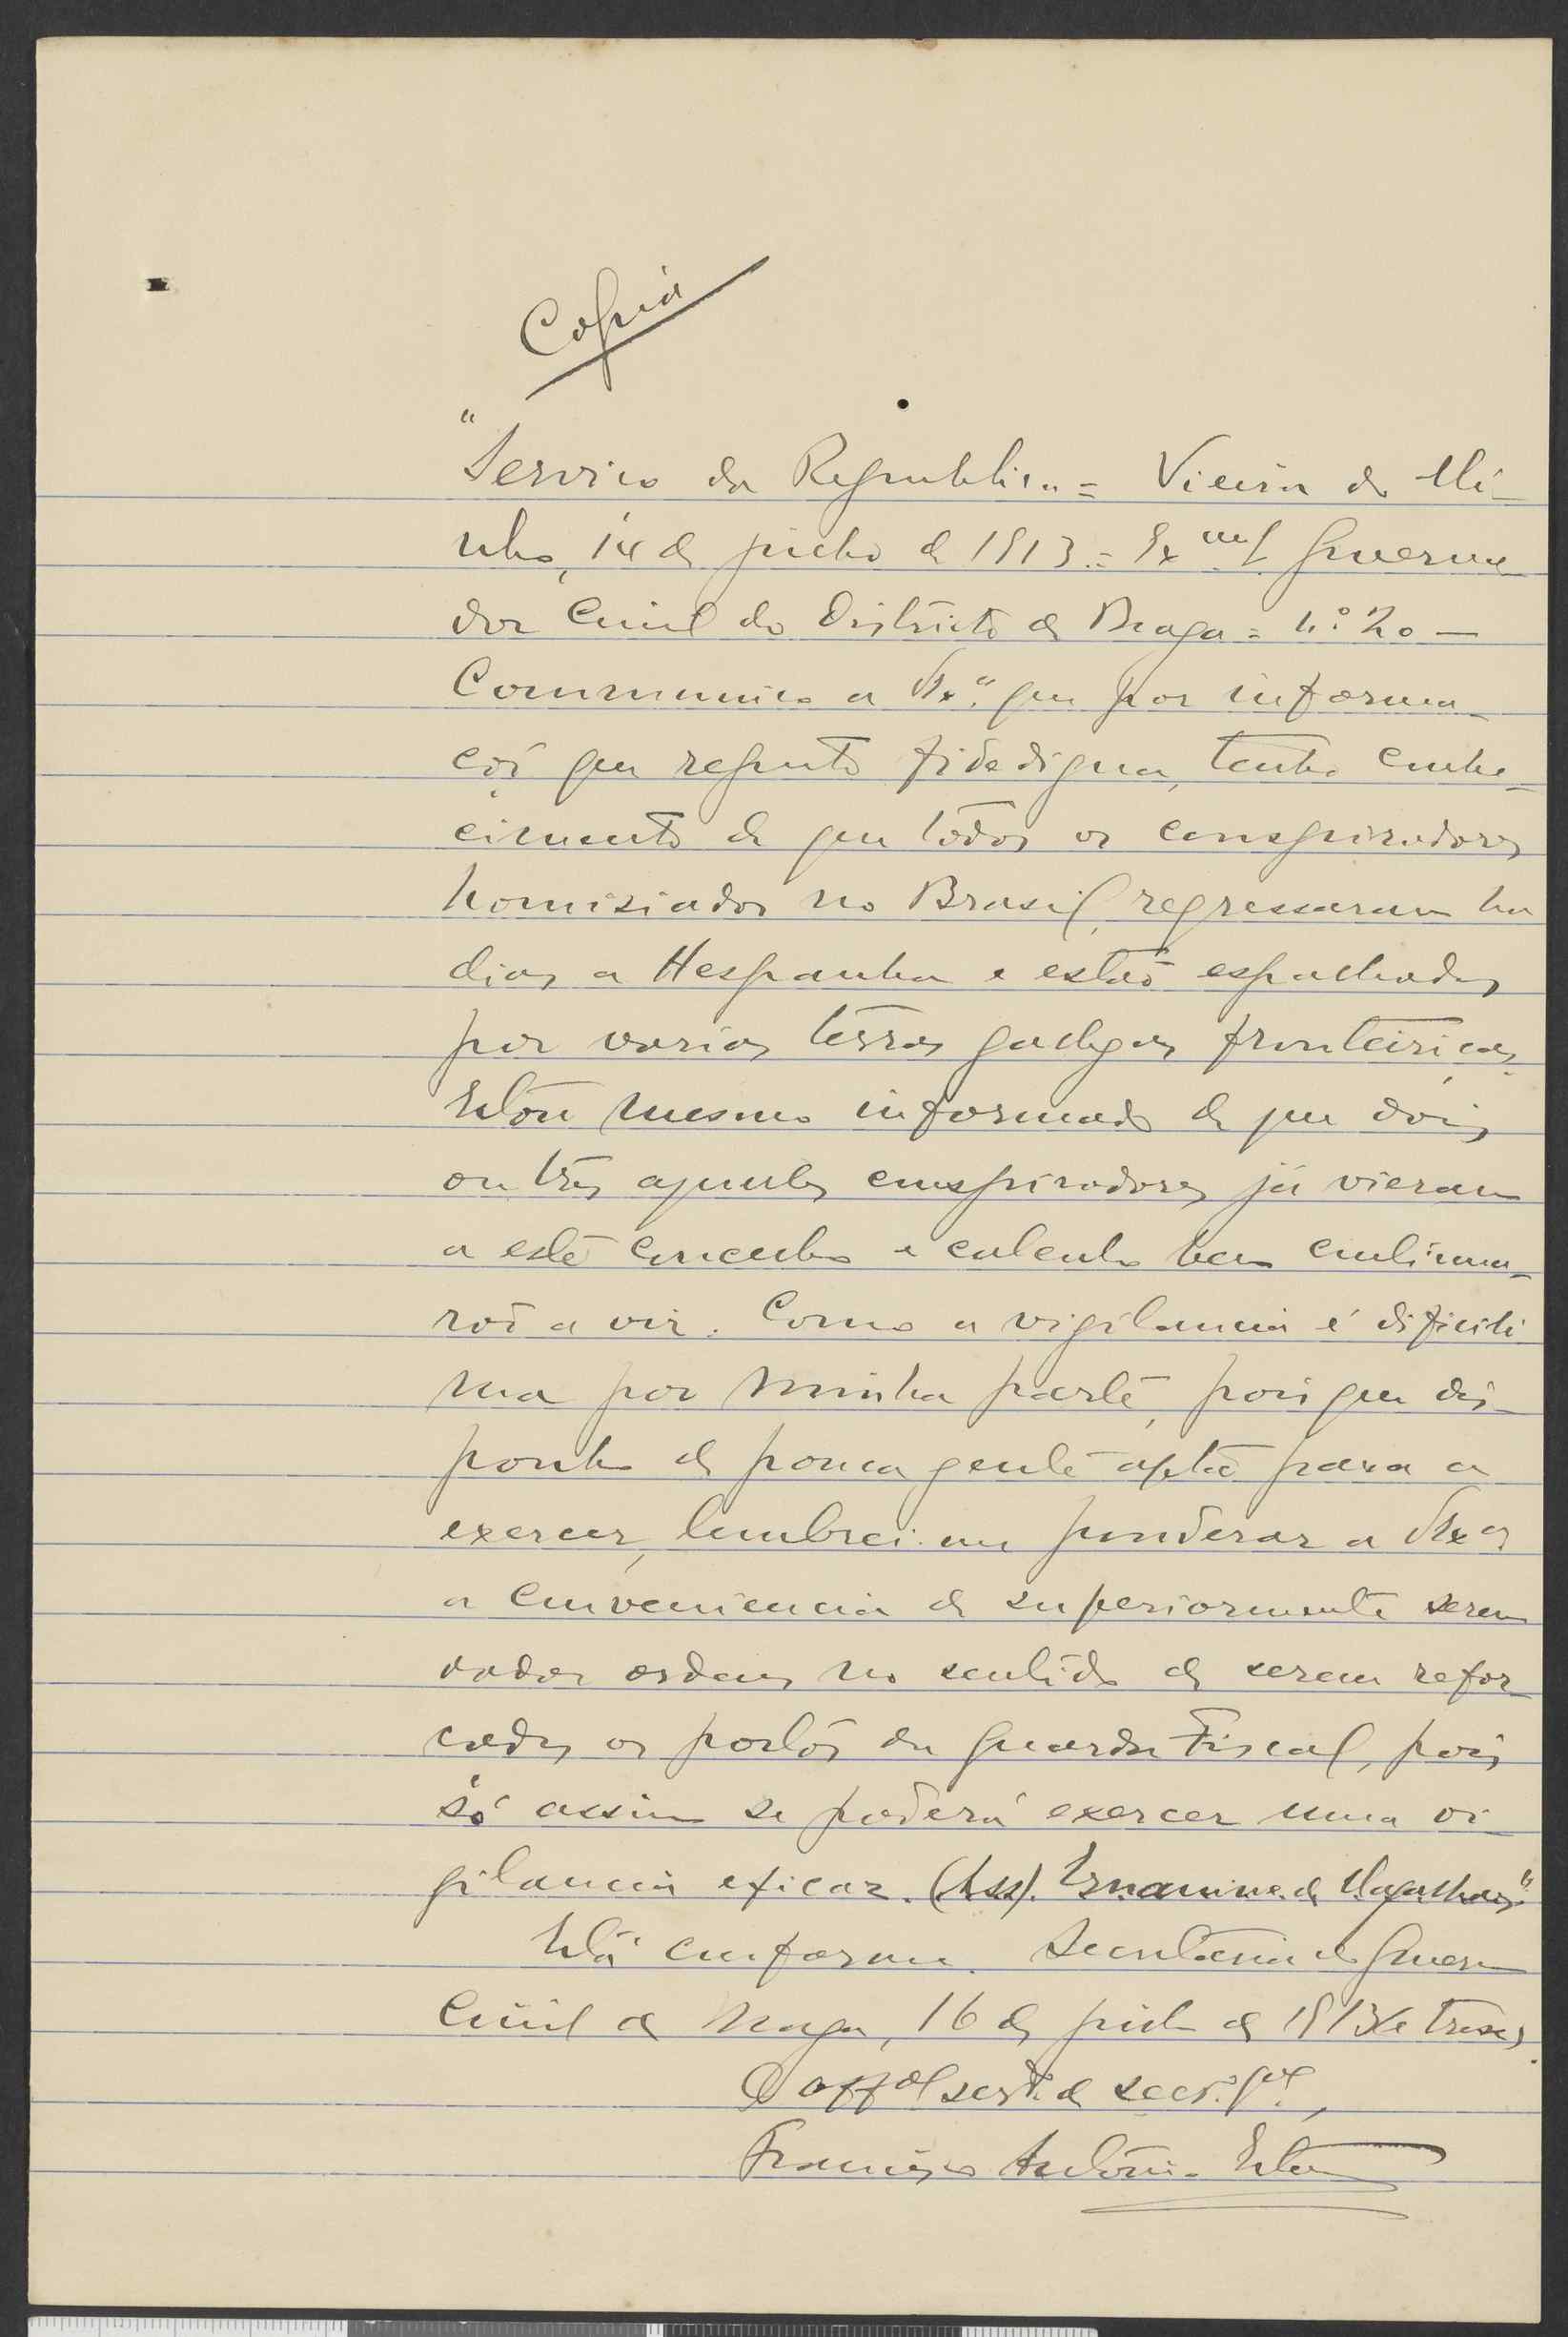 Copia
"Serviço da Republica = Vieira do Mi-
nho, 14 de junho de 1913 = Ex.mo Sr. Governa
dor Civil do Districto de Braga = N.º 20 —
Communico a V. Ex.ª que por informa-
ção que reputo fidedigna, tenho conhe-
cimento de que todos os conspiradores
homisiados no Brasil, regressaram ha
dias a Hespanha e estão espalhados
por varias terras gallegas fronteiriças.
Estou mesmo informado de que dois
ou tres aqueles conspiradores já vieram
a este concelho e calculo bem continua-
rão a vir. Como a vigilancia é dificili
ma por minha parte, pois que dis-
ponho de pouca gente apta para a
exercer, lembrei-me ponderar a V. Ex.ª
a conveniencia de superiormente serem
dadas ordens no sentido de serem refor-
çados os postos da Guarda Fiscal, pois
só assim se poderá exercer uma vi-
gilancia eficaz. (Ass). de Magalhães"
Está conforme. Secretaria do Governo
Civil de Braga, 16 de junho de 1913/e treze.
O off.al serv.do de secr.º g.al,
Francisco Antonio